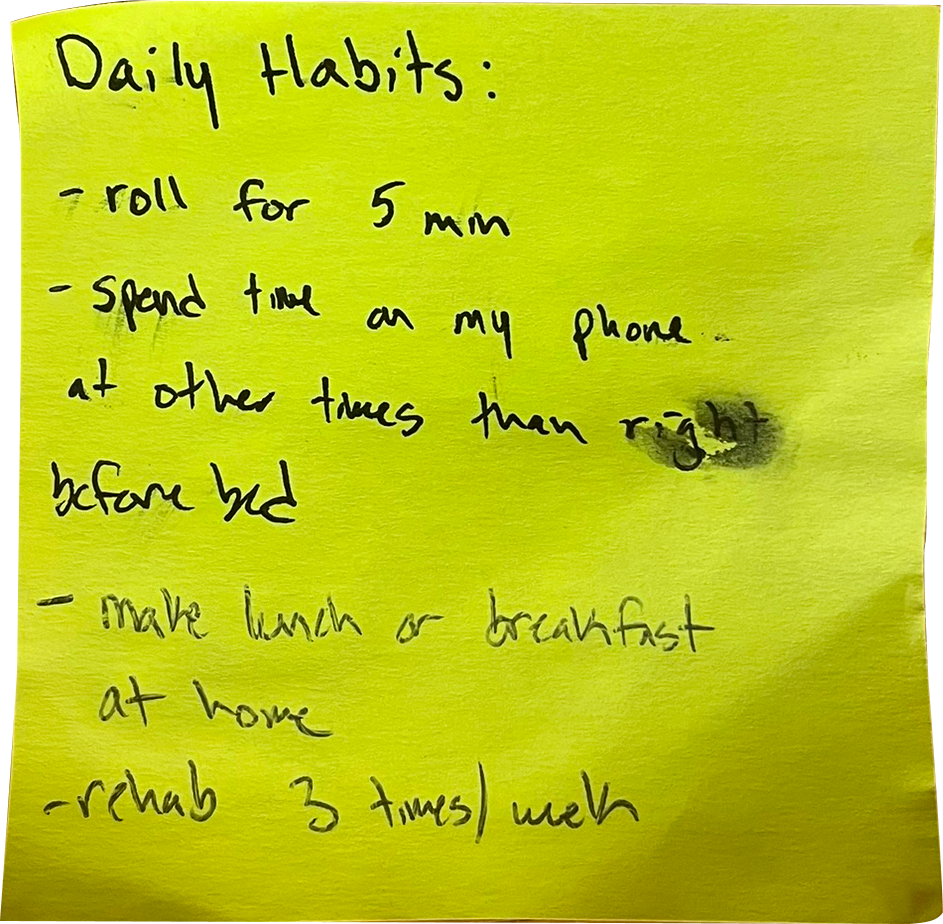 Daily Habits:
- roll for 5 min
- spend time on my phone
at other times than right
before bed
- make lunch or breakfast
at home
- rehab 3 times/week